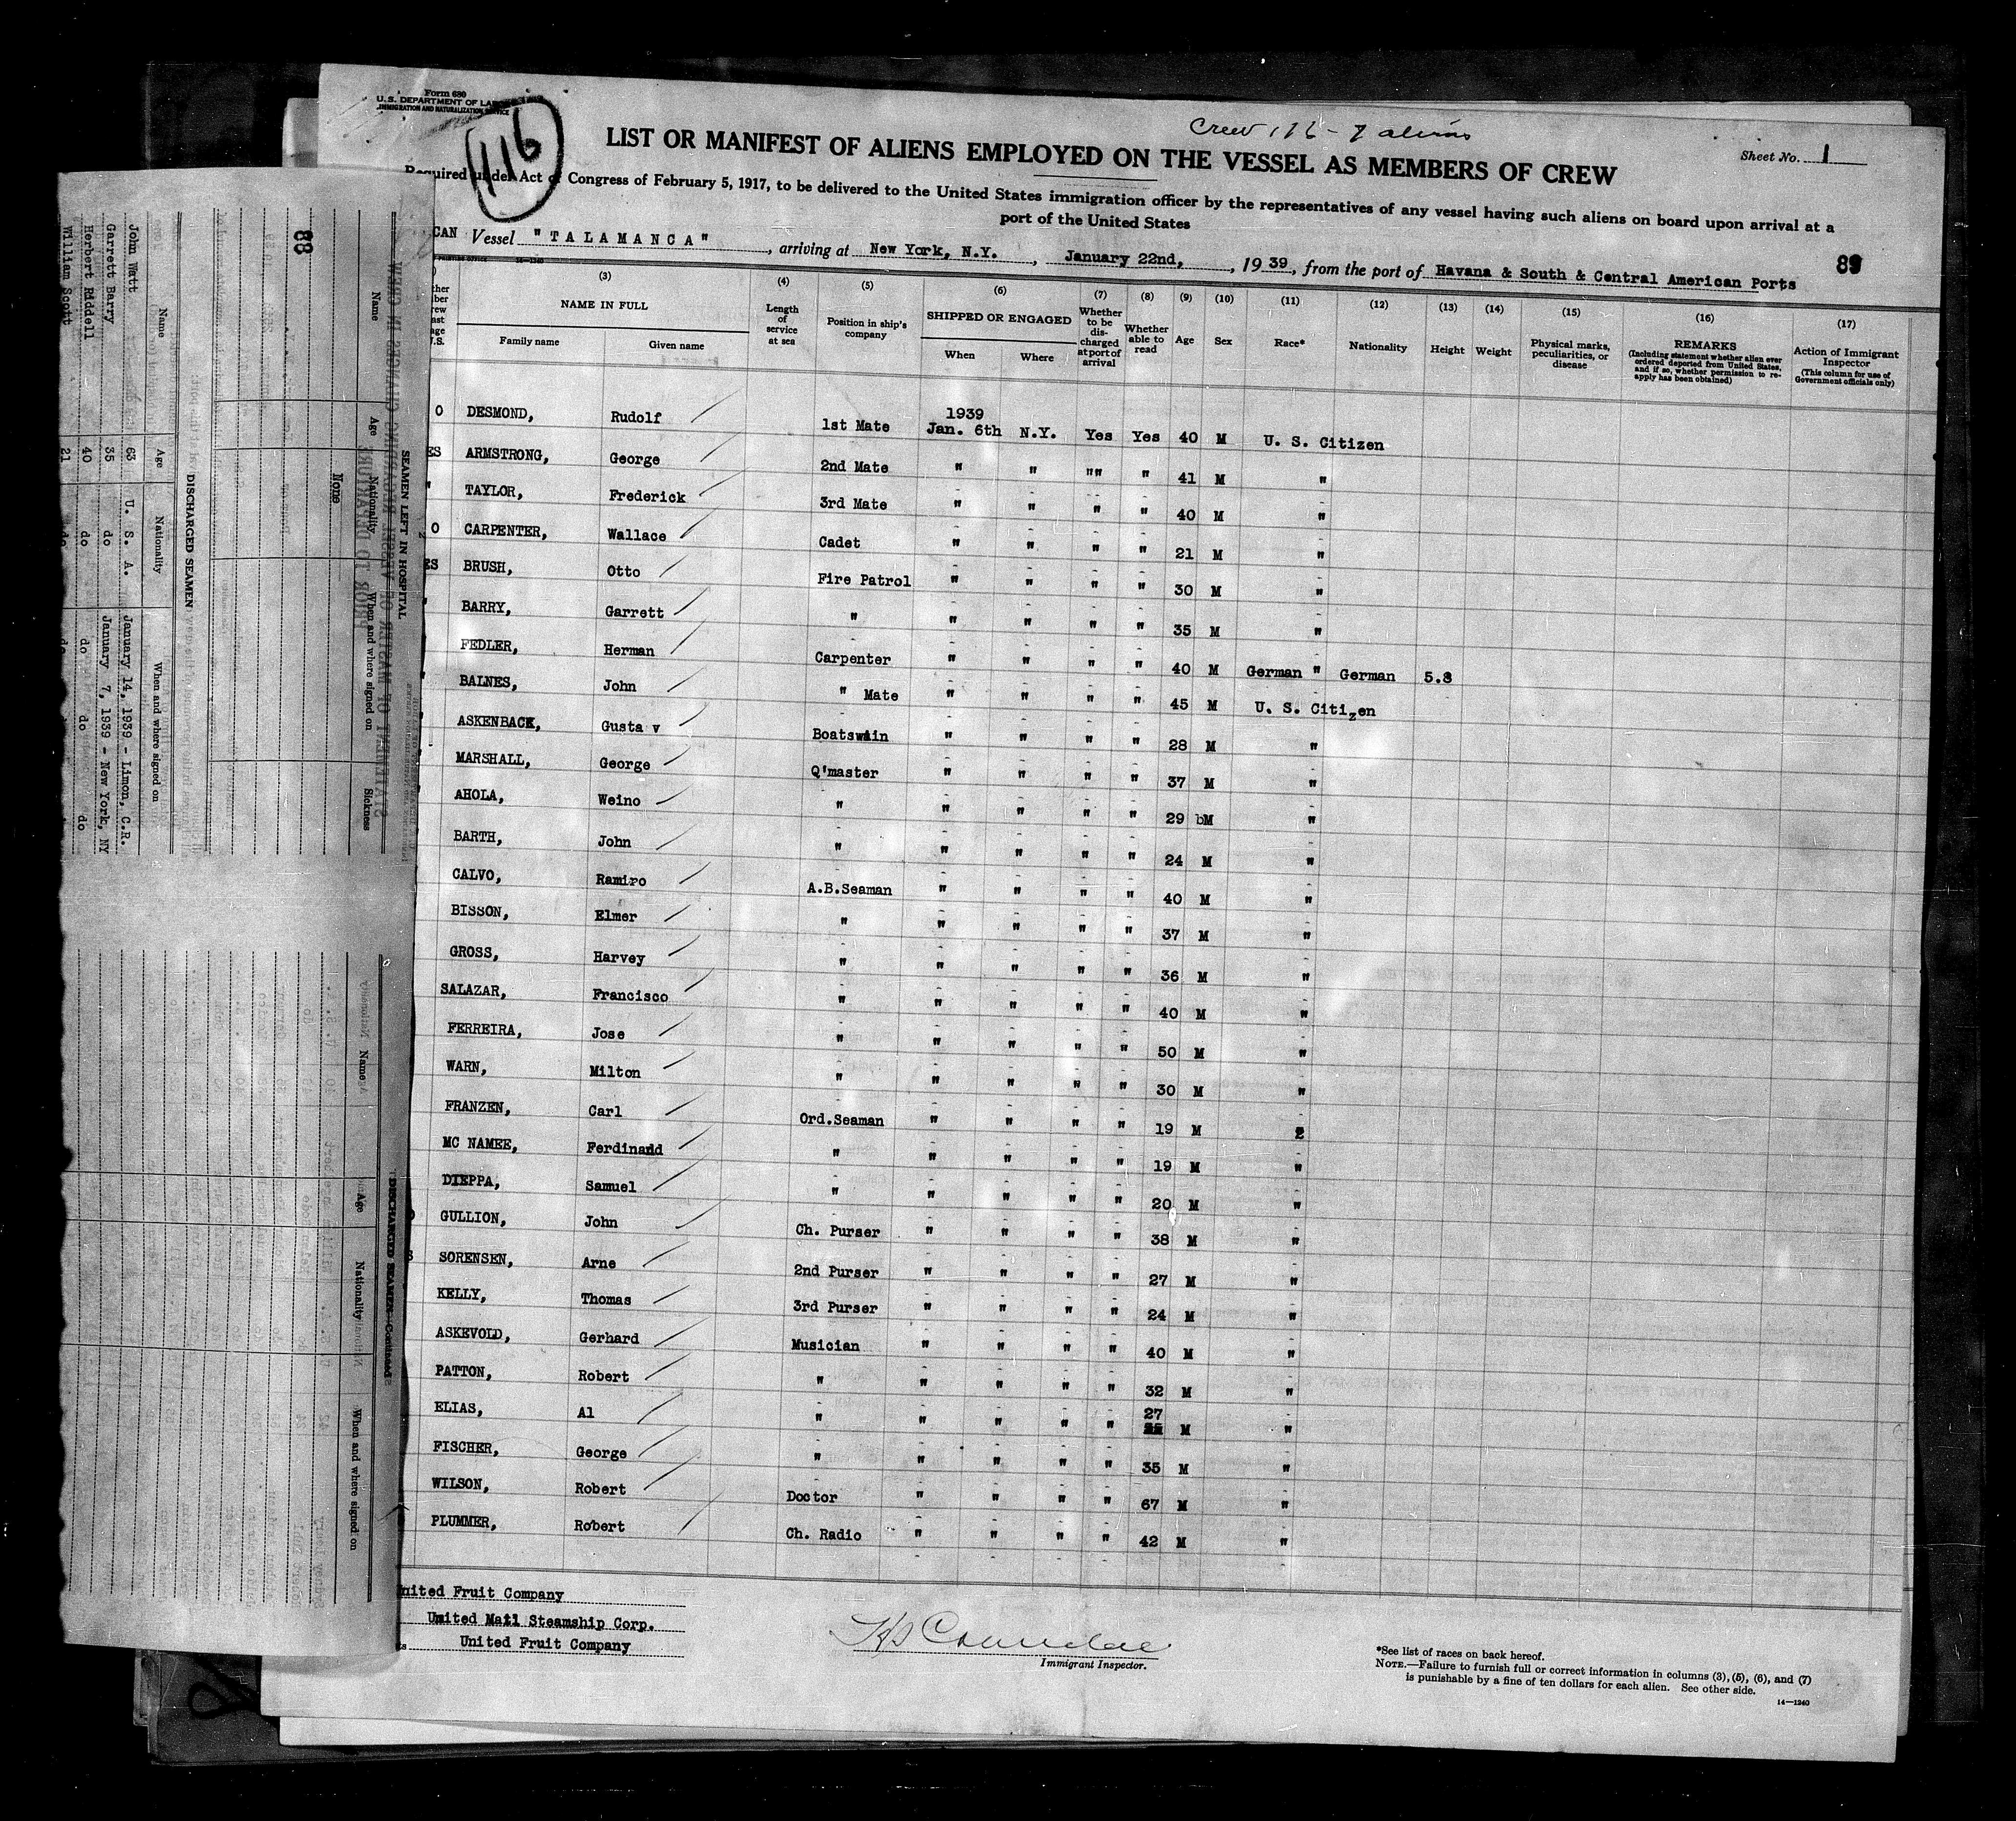 Form 680
U.S. DEPARTMENT OF
IMMIGRATION AND NATURALIZATION SERVICE
116
Crew 116 - 7 aliens
Sheet No. 1
LIST OR MANIFEST OF ALIENS EMPLOYED ON THE VESSEL AS MEMBERS OF CREW
Required under Act of Congress of February 5, 1917, to be delivered to the United States immigration officer by the representatives of any vessel having such aliens on board upon arrival at a
port of the United States
CAN Vessel "TALAMANCA", arriving at New York, N.Y., January 22nd, 1939, from the port of Havana & South & Central American Ports
89
(3) (4) (5) (6) (7) (8) (9) (10) (11) (12) (13) (14) (15) (16) (17)
NAME IN FULL
Family name Given name
Length of service at sea
Position in ship's company
SHIPPED OR ENGAGED
When Where
Whether to be discharged at port of arrival
Whether able to read
Age
Sex
Race*
Nationality
Height
Weight
Physical marks, peculiarities, or disease
REMARKS
(Including statement whether alien ever ordered deported from United States, and if so, whether permission to reapply has been obtained)
Action of Immigrant Inspector
(This column for use of Government officials only)
1939
O DESMOND, Rudolf 1st Mate Jan. 6th N.Y. Yes Yes 40 M U. S. Citizen
ES ARMSTRONG, George 2nd Mate " " "" " 41 M "
" TAYLOR, Frederick 3rd Mate " " " " 40 M "
O CARPENTER, Wallace Cadet " " " " 21 M "
ES BRUSH, Otto Fire Patrol " " " " 30 M "
" BARRY, Garrett " " " " " 35 M "
FEDLER, Herman Carpenter " " " " 40 M German " German 5.8
" BALNES, John " Mate " " " " 45 M U. S. Citizen
" ASKENBACK, Gustav Boatswain " " " " 28 M "
MARSHALL, George Q'master " " " " 37 M "
AHOLA, Weino " " " " " 29 bM "
BARTH, John " " " " " 24 M "
CALVO, Ramiro A.B.Seaman " " " " 40 M "
BISSON, Elmer " " " " " 37 M "
GROSS, Harvey " " " " " 36 M "
SALAZAR, Francisco " " " " " 40 M "
FERREIRA, Jose " " " " " 50 M "
WARN, Milton " " " " " 30 M "
FRANZEN, Carl Ord.Seaman " " " " 19 M 2
MC NAMEE, Ferdinand " " " " " 19 M "
DIEPPA, Samuel " " " " " 20 M "
GULLION, John Ch. Purser " " " " 38 M "
S SORENSEN, Arne 2nd Purser " " " " 27 M "
KELLY, Thomas 3rd Purser " " " " 24 M "
ASKEVOLD, Gerhard Musician " " " " 40 M "
PATTON, Robert " " " " " 32 M "
ELIAS, Al " " " " " 27 M "
FISCHER, George " " " " " 35 M "
WILSON, Robert Doctor " " " " 67 M "
PLUMMER, Robert Ch. Radio " " " " 42 M "
United Fruit Company
United Mail Steamship Corp.
United Fruit Company
Immigrant Inspector.
*See list of races on back hereof.
NOTE.—Failure to furnish full or correct information in columns (3), (5), (6), and (7)
is punishable by a fine of ten dollars for each alien. See other side.
14—1240
88
SEAMEN LEFT IN HOSPITAL
Name Age Nationality When and where signed on Sickness
None
DISCHARGED SEAMEN
Name Age Nationality When and where signed on
John Watt 63 U. S. A. January 14, 1939 - Limon, C.R.
Garrett Barry 35 do January 7, 1939 - New York, NY
Herbert Riddell 40 do do do do
William Scott 21 do do
DISCHARGED SEAMEN—Continued
Name Age Nationality When and where signed on